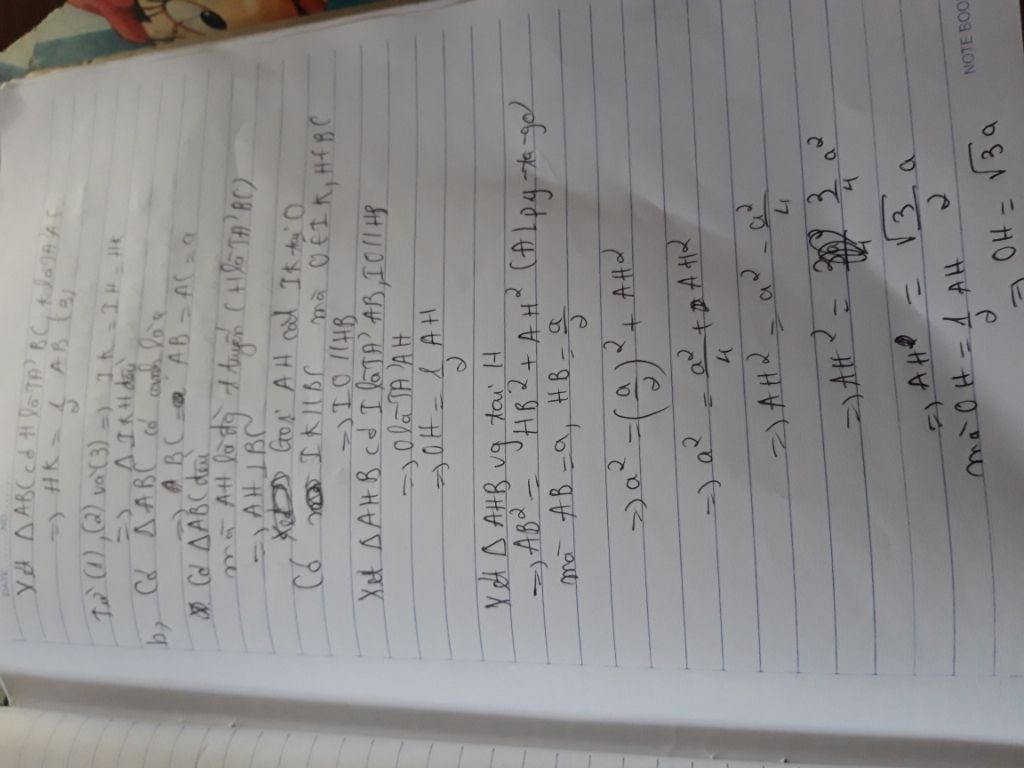 DATE NO.
Xét Δ ABC có H là TĐ BC, K là TĐ AC
=) HK = 1/2 AB (3)
Từ (1), (2) và (3) =) IK = IH = HK
=) Δ IKH đều
b, Có Δ ABC có cạnh là a
=) BC = AB = AC = a
Có Δ ABC đều
mà AH là đg t tuyến (H là TĐ BC)
=) AH ⊥ BC
Gọi AH cắt IK tại O
Có IK // BC mà O ∈ IK, H ∈ BC
=) IO // HB
Xét Δ AHB có I là TĐ AB, IO // HB
=) O là TĐ AH
=) OH = 1/2 AH
Xét Δ AHB vg tại H
=) AB² = HB² + AH² (ĐL py-ta-go)
mà AB = a, HB = a/2
=) a² = (a/2)² + AH²
=) a² = a²/4 + AH²
=) AH² = a² - a²/4
=) AH² = 3/4 a²
=) AH = √3/2 a
mà OH = 1/2 AH
=) OH = √3 a
NOTE BOO